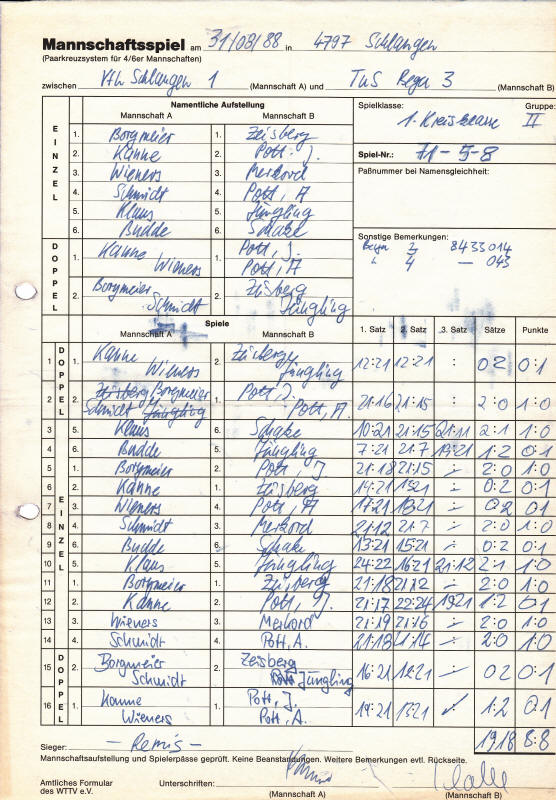 Mannschaftsspiel am 31/08/88 in 4797 Schlangen
(Paarkreuzsystem für 4/6er Mannschaften)
zwischen VfL Schlangen 1 (Mannschaft A) und TuS Bega 3 (Mannschaft B)
Namentliche Aufstellung
Mannschaft A Mannschaft B
Spielklasse: Gruppe:
1. Kreisklasse II
EINZEL
1. Borgmeier 1. Zeisberg
2. Kanne 2. Pott, J.
3. Wieners 3. Merkord
4. Schmidt 4. Pott, A
5. Klaus 5. Jüngling
6. Budde 6. Schake
Spiel-Nr.: 71-5-8
Paßnummer bei Namensgleichheit:
Sonstige Bemerkungen:
Bega 2 8433014
" 4 — 043
DOPPEL
1. Kanne Wieners 1. Pott, J. Pott, A
2. Borgmeier Schmidt 2. Zeisberg Jüngling
Spiele
Mannschaft A Mannschaft B 1. Satz 2. Satz 3. Satz Sätze Punkte
DOPPEL
1 1. Kanne Wieners 2. Zeisberg Jüngling 12:21 12:21 : 0:2 0:1
2 2. Zeisberg Borgmeier Schmidt Jüngling 1. Pott, J. Pott, A. 21:16 21:15 : 2:0 1:0
EINZEL
3 5. Klaus 6. Schake 10:21 21:15 21:11 2:1 1:0
4 6. Budde 5. Jüngling 7:21 21:7 19:21 1:2 0:1
5 1. Borgmeier 2. Pott, J. 21:18 21:15 : 2:0 1:0
6 2. Kanne 1. Zeisberg 14:21 : 0:2 0:1
7 3. Wieners 4. Pott, A 17:21 : 0:2 0:1
8 4. Schmidt 3. Merkord 21:12 21:7 : 2:0 1:0
9 6. Budde 6. Schake 13:21 15:21 : 0:2 0:1
10 5. Klaus 5. Jüngling 24:22 16:21 21:12 2:1 1:0
11 1. Borgmeier 1. Zeisberg 21:18 21:12 : 2:0 1:0
12 2. Kanne 2. Pott, J. 21:17 22:24 19:21 1:2 0:1
13 3. Wieners 3. Merkord 21:19 21:16 : 2:0 1:0
14 4. Schmidt 4. Pott, A. 21:18 : 2:0 1:0
DOPPEL
15 2. Borgmeier Schmidt 2. Zeisberg Jüngling 16:21 : 0:2 0:1
16 1. Kanne Wieners 1. Pott, J. Pott, A. 14:21 1:2 0:1
Sieger: - Remis - 19:18 8:8
Mannschaftsaufstellung und Spielerpässe geprüft. Keine Beanstandungen. Weitere Bemerkungen evtl. Rückseite.
Amtliches Formular
des WTTV e.V.
Unterschriften:
(Mannschaft A) (Mannschaft B)